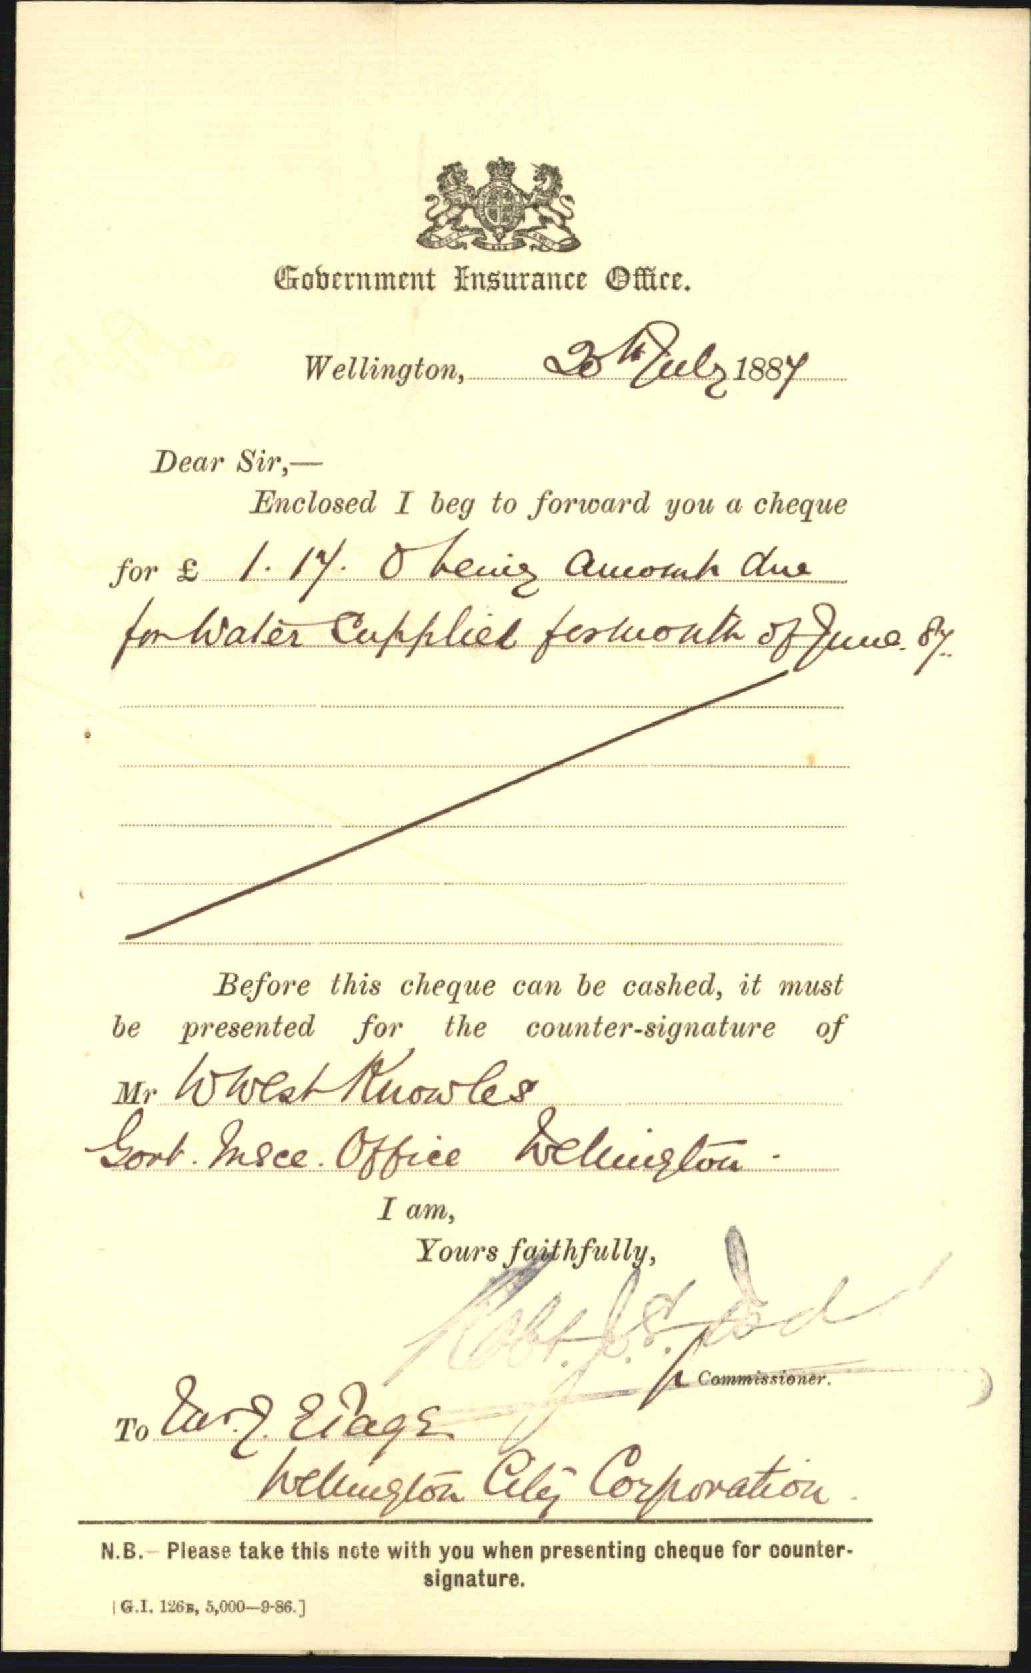 Government Insurance Office.
Wellington, 20th July 1887
Dear Sir,—
Enclosed I beg to forward you a cheque
for £ 1. 17. 0 being amount due
for Water Supplied for month of June. 87.
Before this cheque can be cashed, it must
be presented for the counter-signature of
Mr W West Knowles
Govt. Insce. Office Wellington.
I am,
Yours faithfully,
Robt. J. S. Tod
p Commissioner.
To Mr. J. E Page
Wellington City Corporation.
N.B.— Please take this note with you when presenting cheque for counter-
signature.
[G.I. 126B, 5,000—9-86.]